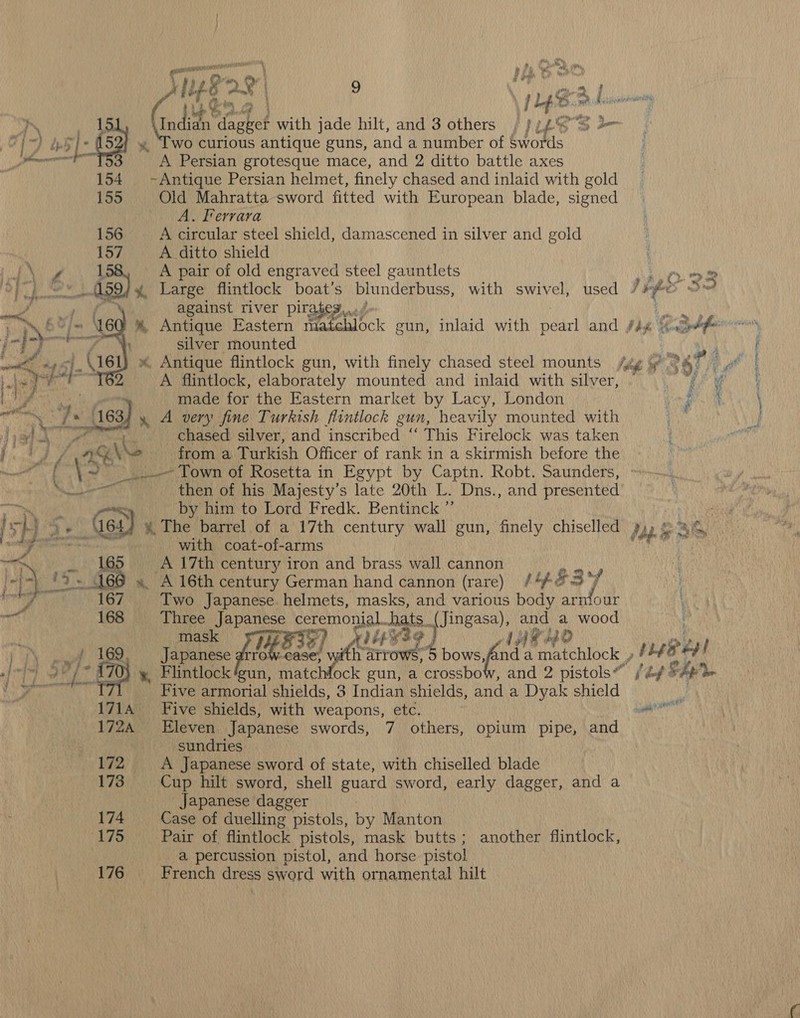 9
151 Indian dagger with jade hilt, and 3 others
152 Two curious antique guns, and a number of swords
153 A Persian grotesque mace, and 2 ditto battle axes
154 Antique Persian helmet, finely chased and inlaid with gold
155 Old Mahratta sword fitted with European blade, signed
A. Ferrara
156 A circular steel shield, damascened in silver and gold
157 A ditto shield
158 A pair of old engraved steel gauntlets
159 Large flintlock boat's blunderbuss, with swivel, used
against river pirates
160 Antique Eastern matchlock gun, inlaid with pearl and
silver mounted
161 Antique flintlock gun, with finely chased steel mounts
162 A flintlock, elaborately mounted and inlaid with silver,
made for the Eastern market by Lacy, London
163 A very fine Turkish flintlock gun, heavily mounted with
chased silver, and inscribed “ This Firelock was taken
from a Turkish Officer of rank in a skirmish before the
Town of Rosetta in Egypt by Captn. Robt. Saunders,
then of his Majesty's late 20th L. Dns., and presented
by him to Lord Fredk. Bentinck ”
164 The barrel of a 17th century wall gun, finely chiselled
with coat-of-arms
165 A 17th century iron and brass wall cannon
166 A 16th century German hand cannon (rare)
167 Two Japanese helmets, masks, and various body armour
168 Three Japanese ceremonial hats (Jingasa), and a wood
mask
169 Japanese arrow case, with arrows, 5 bows, and a matchlock
170 Flintlock gun, matchlock gun, a crossbow, and 2 pistols
171 Five armorial shields, 3 Indian shields, and a Dyak shield
171A Five shields, with weapons, etc.
172A Eleven Japanese swords, 7 others, opium pipe, and
sundries
172 A Japanese sword of state, with chiselled blade
173 Cup hilt sword, shell guard sword, early dagger, and a
Japanese dagger
174 Case of duelling pistols, by Manton
175 Pair of flintlock pistols, mask butts; another flintlock,
a percussion pistol, and horse pistol
176 French dress sword with ornamental hilt